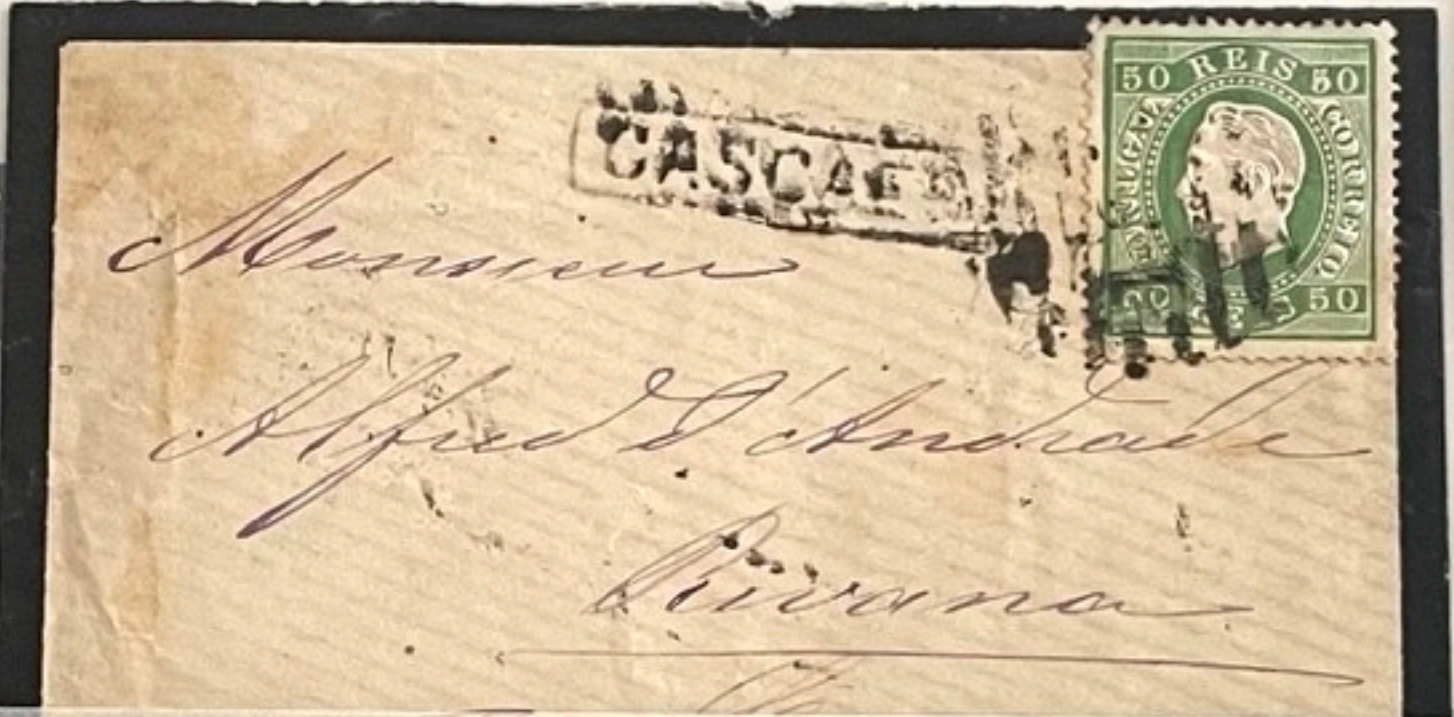 CASCAES
50 REIS 50
PORTUGAL CORREIO
50 50
Monsieur
Alfred d'Andrade